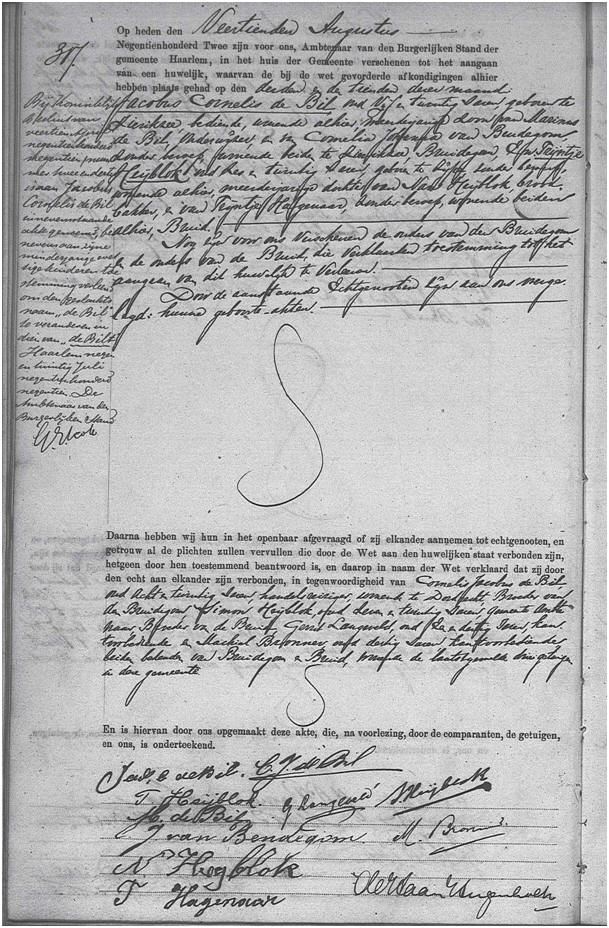 Op heden den Veertienden Augustus
Negentienhonderd Twee zijn voor ons, Ambtenaar van den Burgerlijken Stand der
gemeente Haarlem, in het huis der Gemeente verschenen tot het aangaan
van een huwelijk, waarvan de bij de wet gevorderde afkondigingen alhier
hebben plaats gehad op den derden en den tienden dezer maand:
Jacobus Cornelis de Bil, oud vijf en twintig Jaren, geboren te
Zierikzee, bediende, wonende alhier, meerderjarige zoon van Marinus
de Bil, onderwijzer, en van Cornelia Johanna van Bendegom,
zonder beroep, wonende beiden te Zierikzee, Bruidegom, & en Trijntje
Heijblok, oud zes en twintig Jaren, geboren te zonder beroep,
wonende alhier, meerderjarige dochter van Heijblok, brood-
bakker, en van Trijntje Hagenaar, zonder beroep, wonende beiden
alhier, Bruid.
Nog zijn voor ons verschenen de ouders van den Bruidegom
en de ouders van de Bruid, die verklaarden toestemming tot het
aangaan van dit huwelijk te verleenen.
Door de aanstaande Echtgenooten zijn aan ons overge-
legd: hunne geboorte-akten.
317.
Bij Koninklijk
besluit van
veertien Juni
negentienhonderd
negentien, nummer
is aan Jacobus
Cornelis de Bil
in nevenstaande
akte genoemd, be-
nevens aan zijne
minderjarige wet-
tige kinderen toe-
stemming verleend
om den geslachts-
naam "de Bil"
te veranderen in
dien van "de Bilt"
Haarlem negen
en twintig Juli
negentienhonderd
negentien. De
Ambtenaar van den
Burgerlijken Stand
Daarna hebben wij hun in het openbaar afgevraagd of zij elkander aannemen tot echtgenooten, en
getrouw al de plichten zullen vervullen die door de Wet aan den huwelijken staat verbonden zijn,
hetgeen door hen toestemmend beantwoord is, en daarop in naam der Wet verklaard dat zij door
den echt aan elkander zijn verbonden, in tegenwoordigheid van Cornelis Jacobus de Bil
oud acht en twintig Jaren, handelsreiziger, wonende te Dordrecht, Broeder van
den Bruidegom, Simon Heijblok, oud en twintig Jaren, gemeente Ambte-
naar, Broeder van de Bruid, Gerrit Langeveld, oud en dertig Jaren, kan-
toorbediende en Bronner oud dertig Jaren, kantoorbediende,
beiden bekenden van Bruidegom en Bruid, wonende de laatstgemelde drie getuigen
in deze gemeente.
En is hiervan door ons opgemaakt deze akte, die, na voorlezing, door de comparanten, de getuigen,
en ons, is onderteekend.
Jac. C. de Bil. C. J. de Bil
T. Heijblok. G Langeveld S Heijblok
M. de Bil
J van Bendegom. M. Bronner
N Heyblok
T Hagenaar